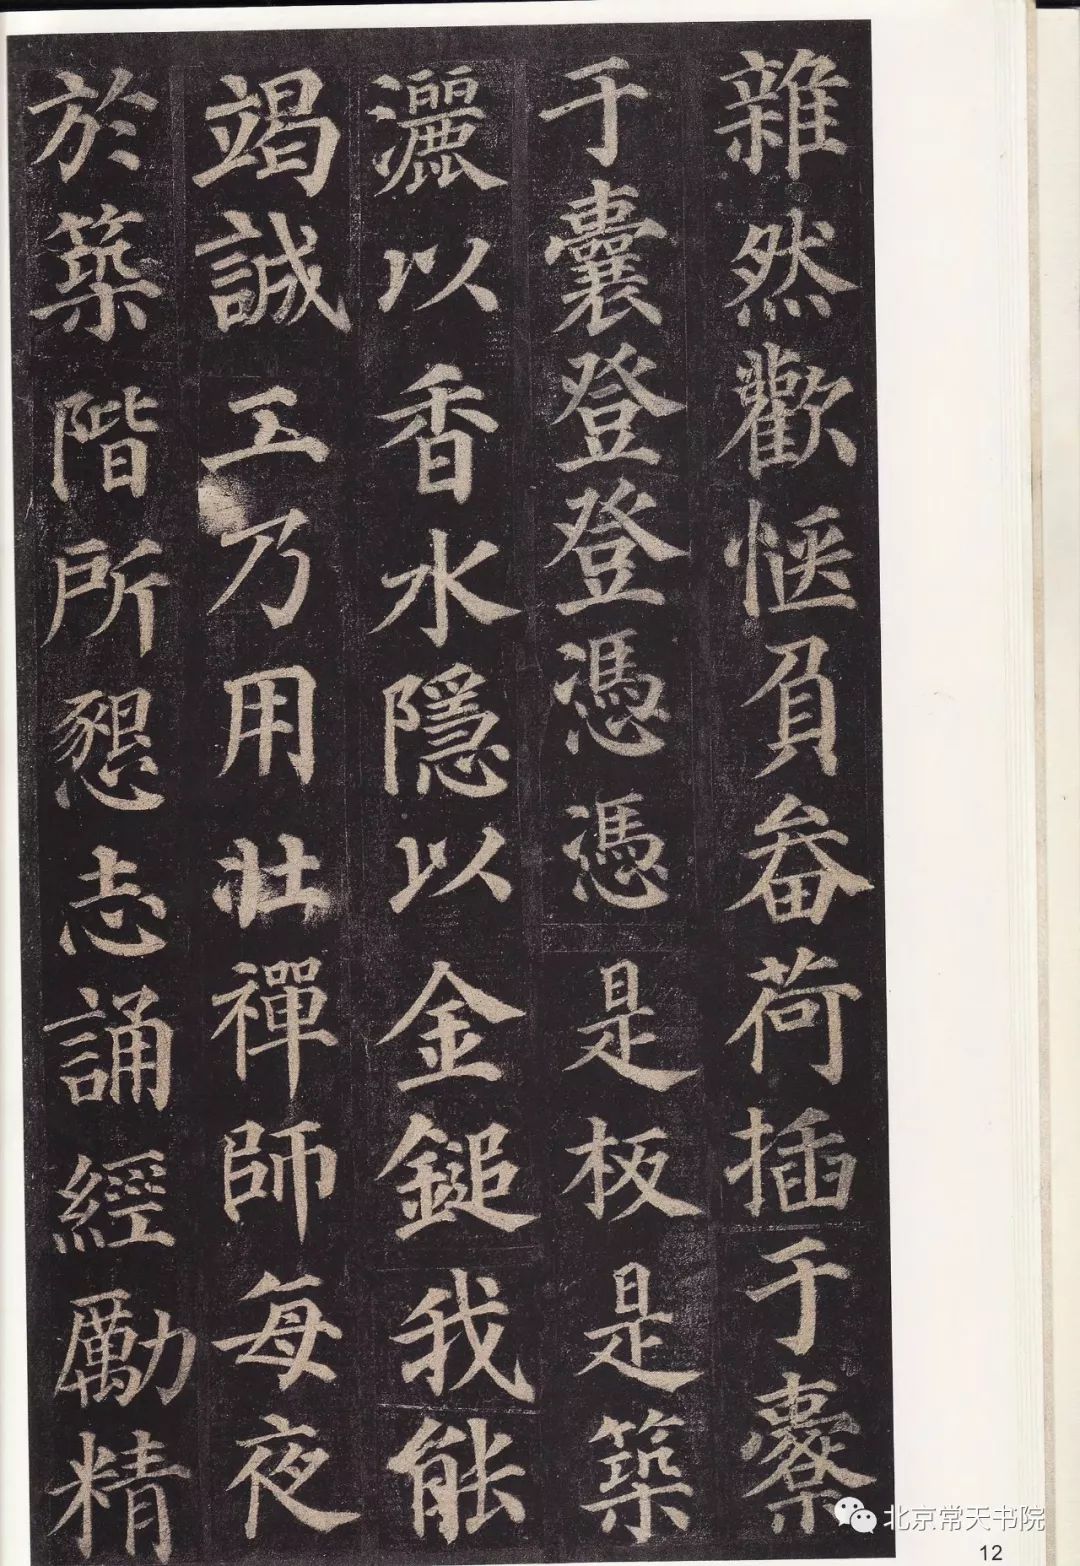 雜然歡愜負畚荷插于橐
于囊登登憑憑是板是築
灑以香水隱以金鎚我能
竭誠工乃用壯禪師每夜
於築階所懇志誦經勵精
北京常天书院
12